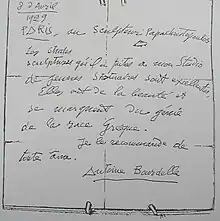 27 Avril
1929
PARIS, au sculpteur Papachristopoulos
Les études
sculptures qu'il a faites a mon Studio
de jeunes Statuaires sont excellentes
Elles ont de la beauté et
se marquent du génie
de la race Grecque.
Je le recommande de
toute âme.
Antoine Bourdelle